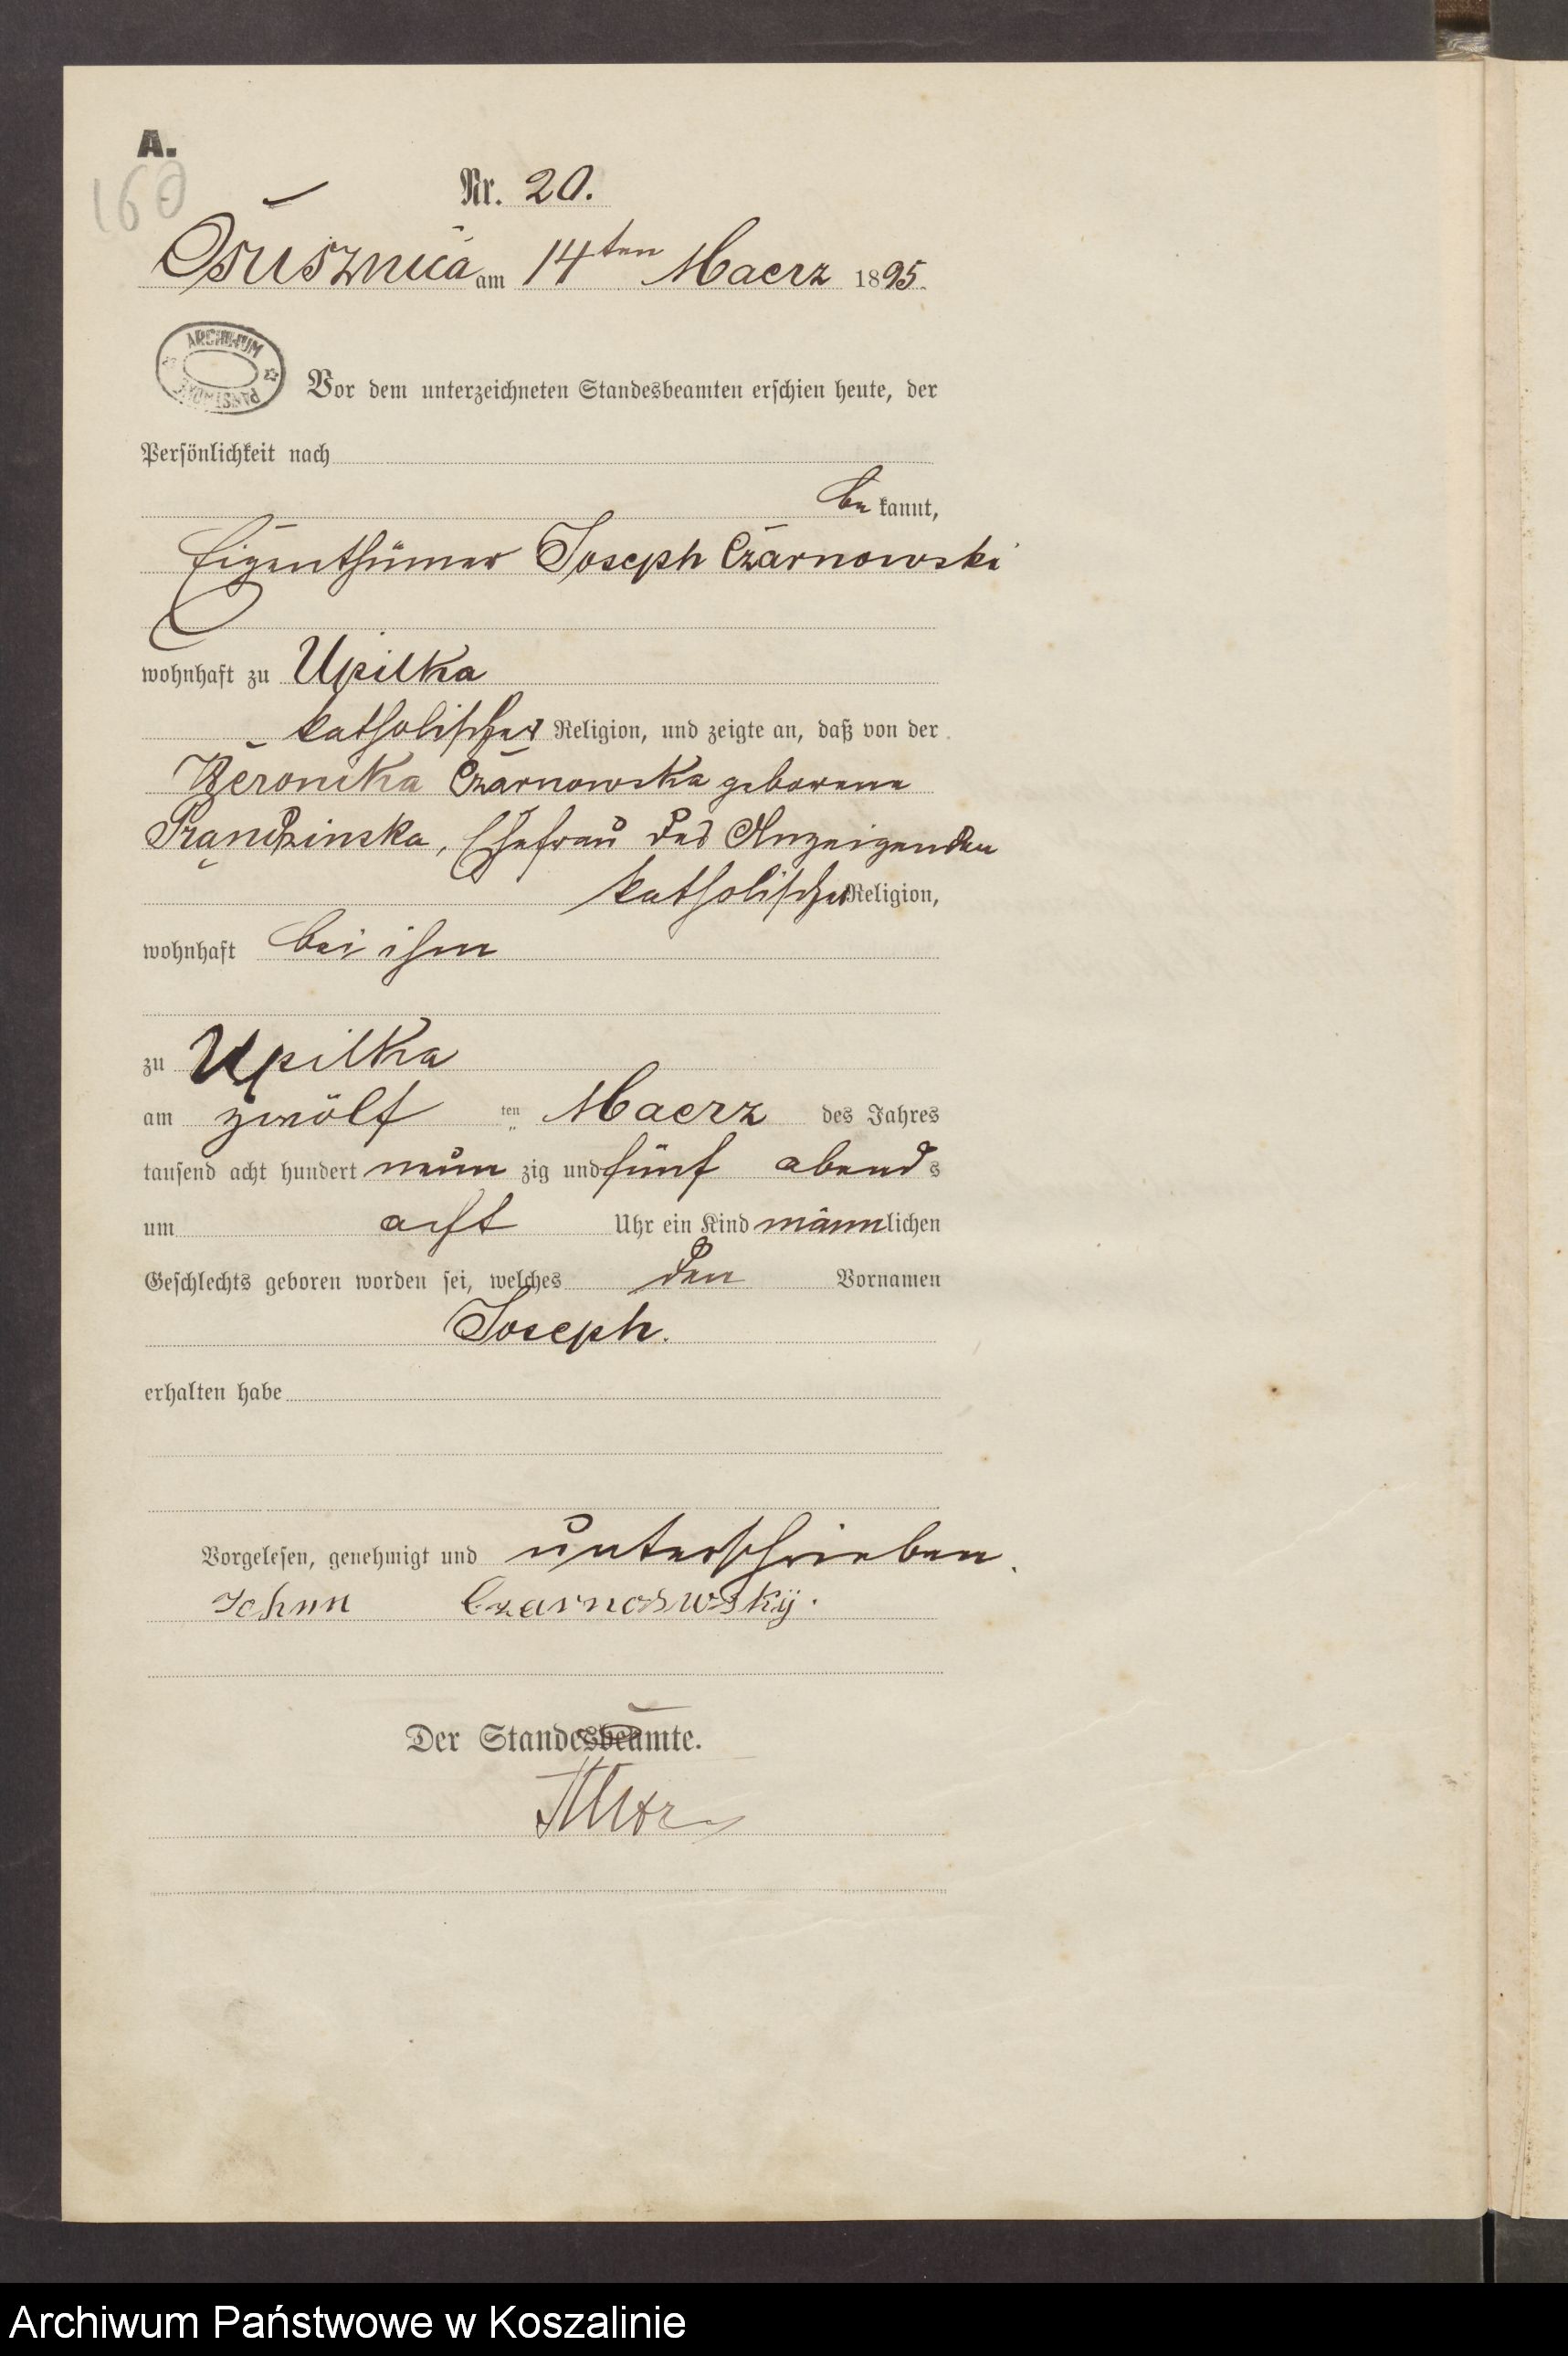 A.
160
Nr. 20.
Osusznica am 14ten Maerz 1895.
ARCHIWUM PAŃSTWOWE
Vor dem unterzeichneten Standesbeamten erschien heute, der
Persönlichkeit nach
be kannt,
Eigenthümer Joseph Czarnowski
wohnhaft zu Upilka
katholischer Religion, und zeigte an, daß von der
Weronika Czarnowska geborene
Prądzinska, Ehefrau des Anzeigenden
katholischer Religion,
wohnhaft bei ihm
zu Upilka
am zwölf ten Maerz des Jahres
tausend acht hundert neun zig und fünf abend s
um acht Uhr ein Kind männlichen
Geschlechts geboren worden sei, welches den Vornamen
Joseph.
erhalten habe
Vorgelesen, genehmigt und unterschrieben.
Der Standesbeamte.
Archiwum Państwowe w Koszalinie